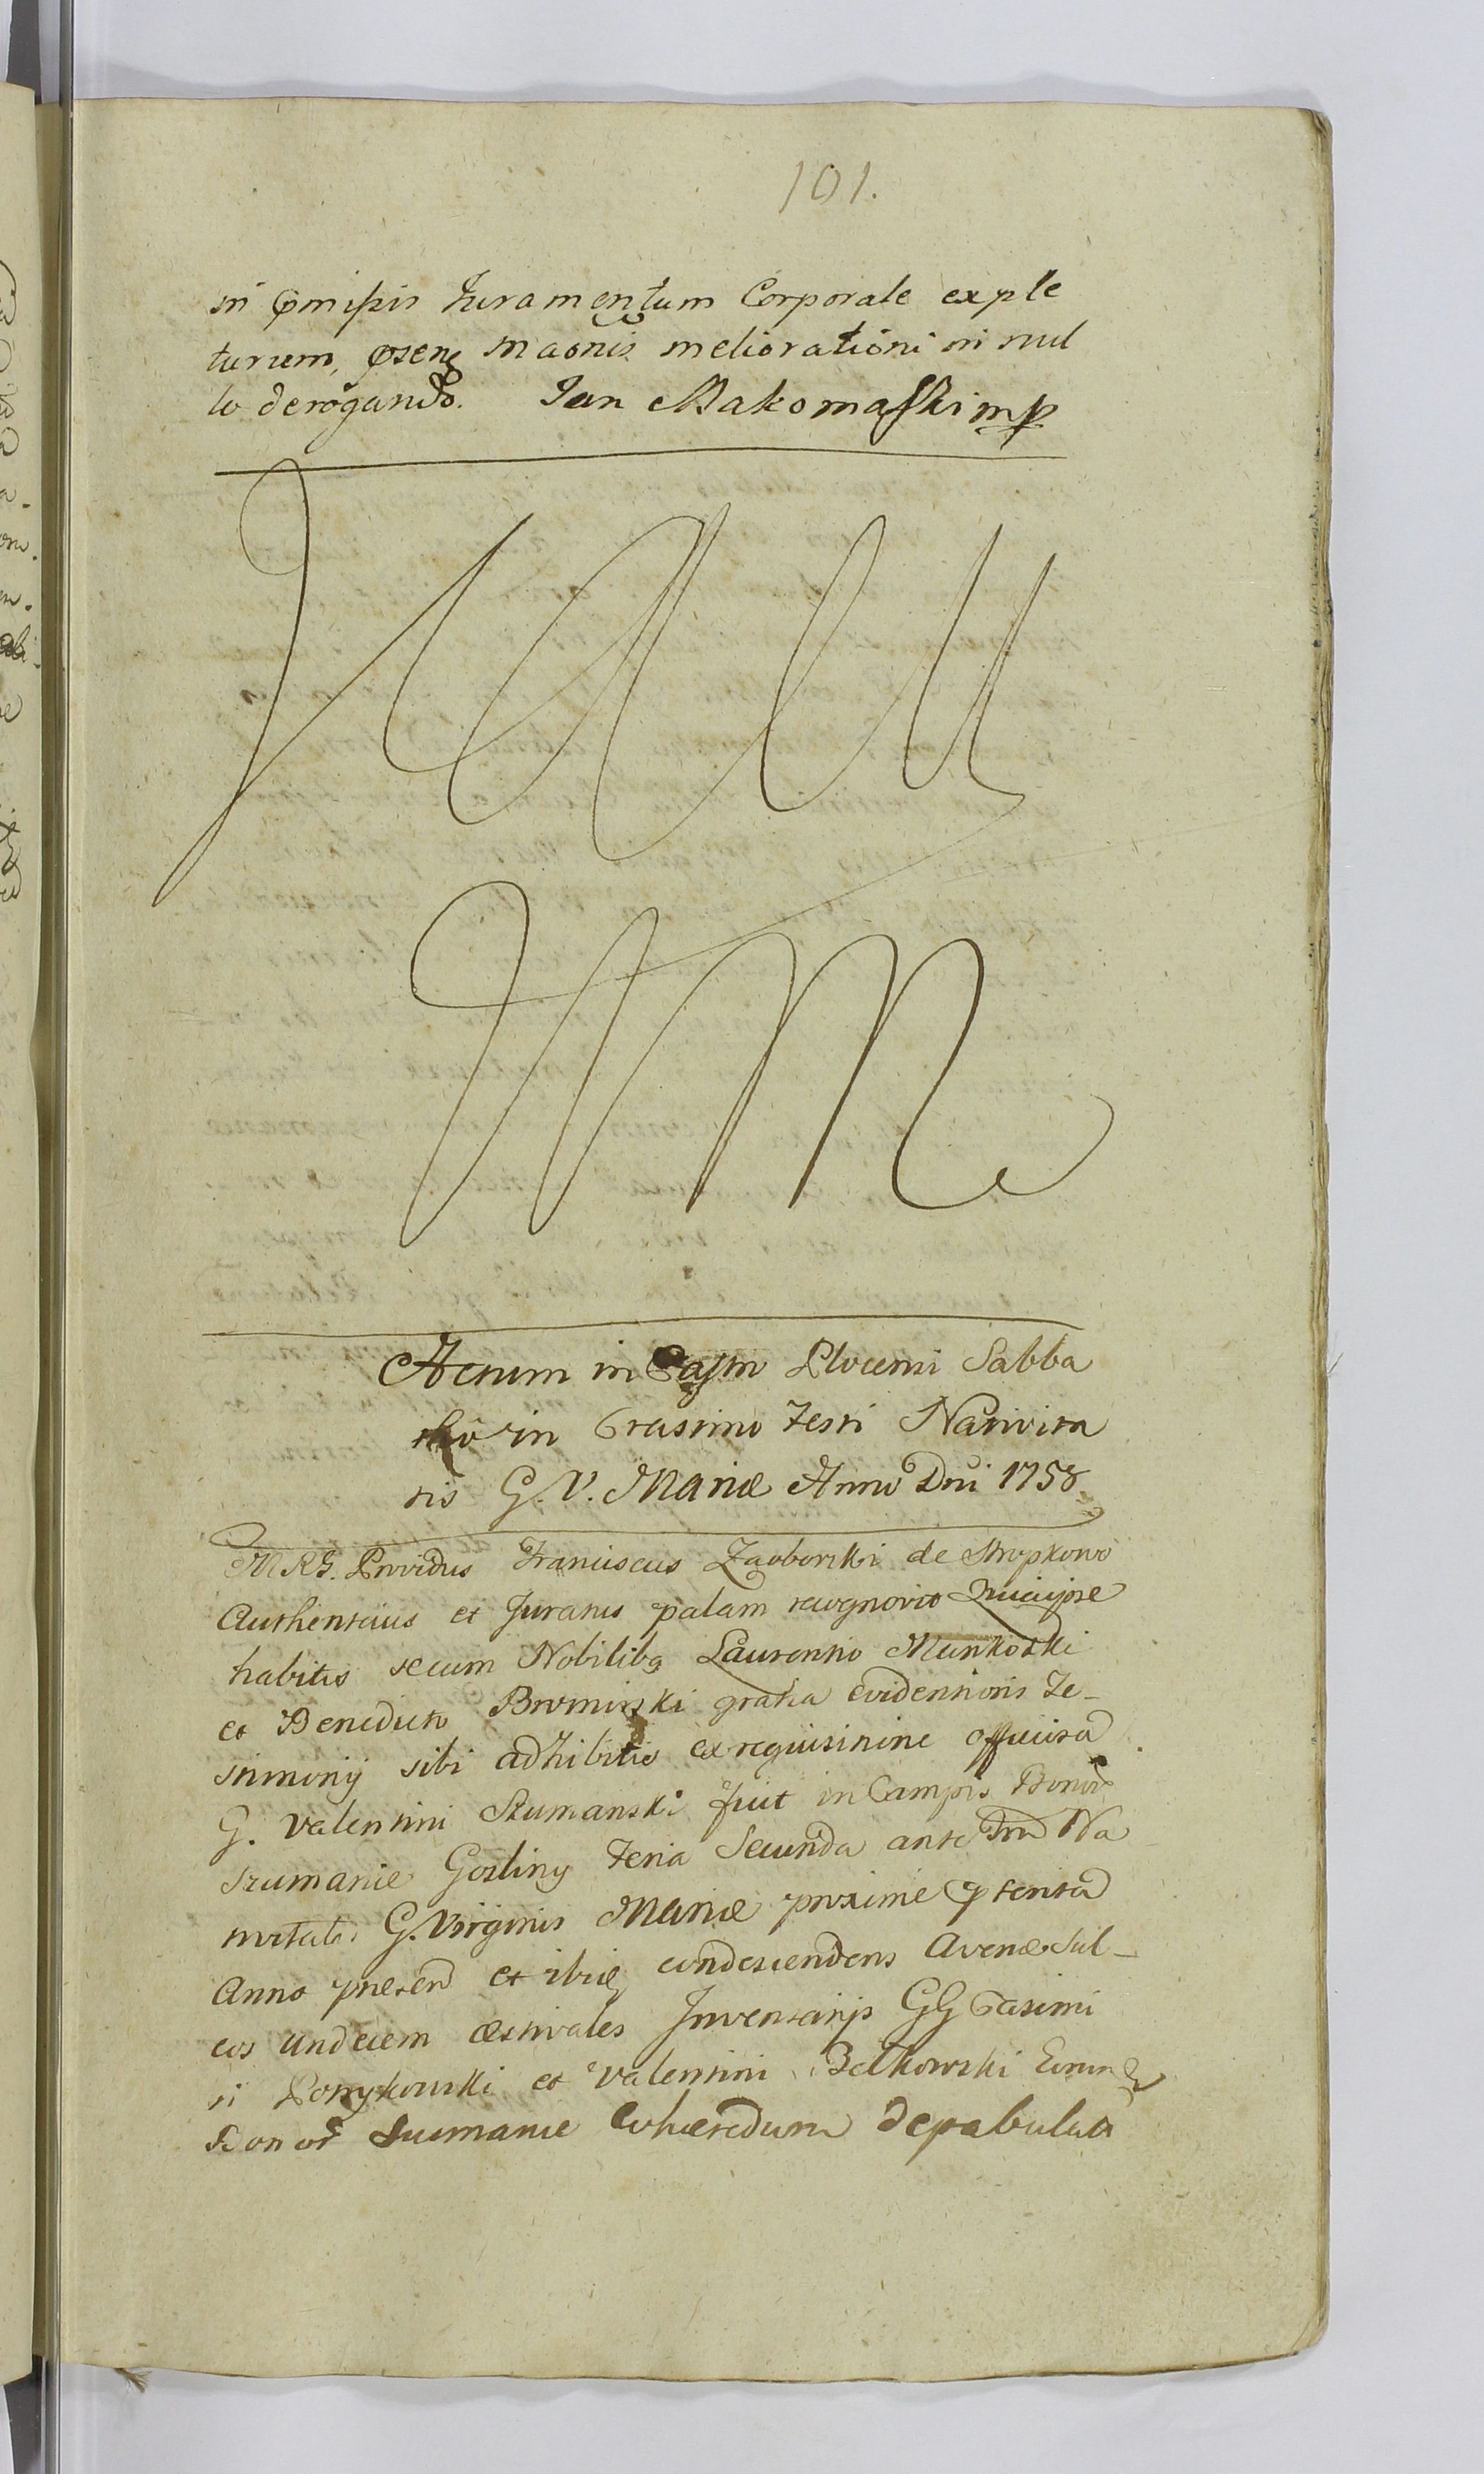 101.
in pmissis Juramentum Corporale exple
turum, psenq maõnis meliorationi in nul
lo derogando. Jan Makomaski mp
Actum in Castro Plocensi Sabba
tho in Crastino Festi Nativita
tis G. V. Mariæ Anno Dni 1758
MRG. Providus Franciscus Zaoborski de Stropkowo
Authenticus et Juratus palam recognovit Quia ipse
habitis secum Nobilibq Laurentio Munkoski
et Benedicto Bromirski gratia evidentioris Te-
stimonij sibi adhibitis ex requisitione officiosa
G. Valentini Szumanski fuit in Campis Bonor
Szumanie Gozliny Feria Secunda ante Na
tivitatis G. Virginis Mariæ proxime pterita
Anno præsen et ibiq condescendens Avenæ Sul-
cos undecem æstivales Inventarijs GG Casimi
ri et Valentini Belkowski
Bonor Szumanie Cohæredum depabulata